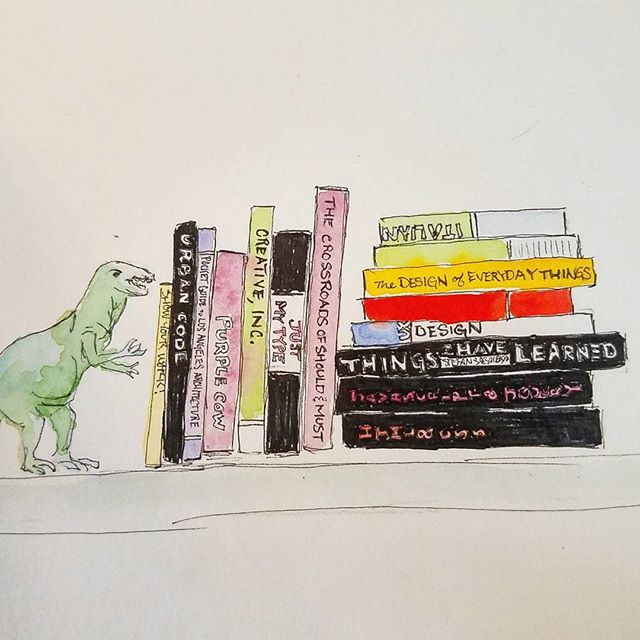 SHOW YOUR WORK!
URBAN CODE
POCKET GUIDE to LOS ANGELES ARCHITECTURE
PURPLE COW
CREATIVE, INC.
JUST MY TYPE
THE CROSSROADS OF SHOULD & MUST
ITALIAN
The DESIGN of EVERYDAY THINGS
UX DESIGN
THINGS I HAVE LEARNED
JAVASCRIPT & JQUERY
HTML & CSS